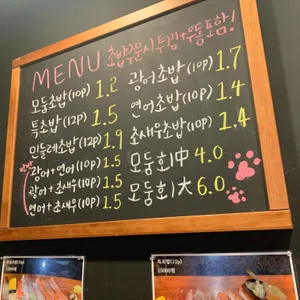 MENU 초밥주문시 튀김+우동포함!
모둠초밥(10p) 1.2
특초밥(12p) 1.5
민들레초밥(12p) 1.9
반반
광어+연어(10p) 1.5
광어+초새우(10p) 1.5
연어+초새우(10p) 1.5
광어초밥(10p) 1.7
연어초밥(10p) 1.4
초새우초밥(10p) 1.4
모둠회中 4.0
모둠회大 6.0
특초밥(12p)
15000원